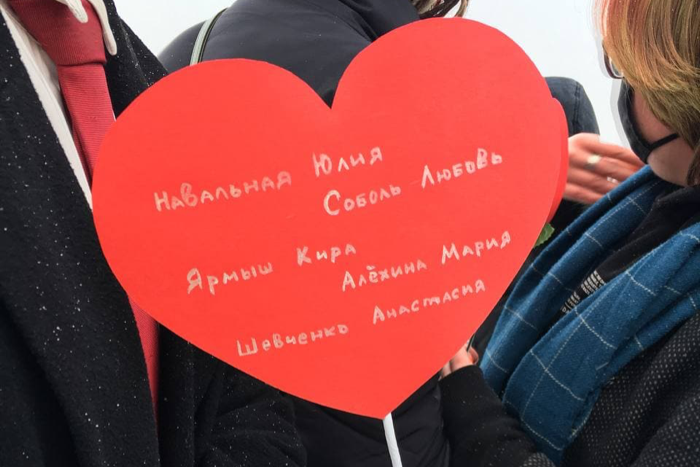 Навальная Юлия
Соболь Любовь
Ярмыш Кира
Алёхина Мария
Шевченко Анастасия